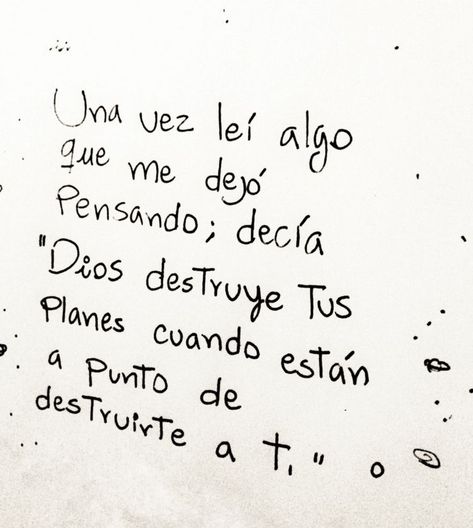 Una vez leí algo
que me dejó
Pensando; decía
"Dios destruye Tus
Planes cuando están
a Punto de
destruirte a ti"